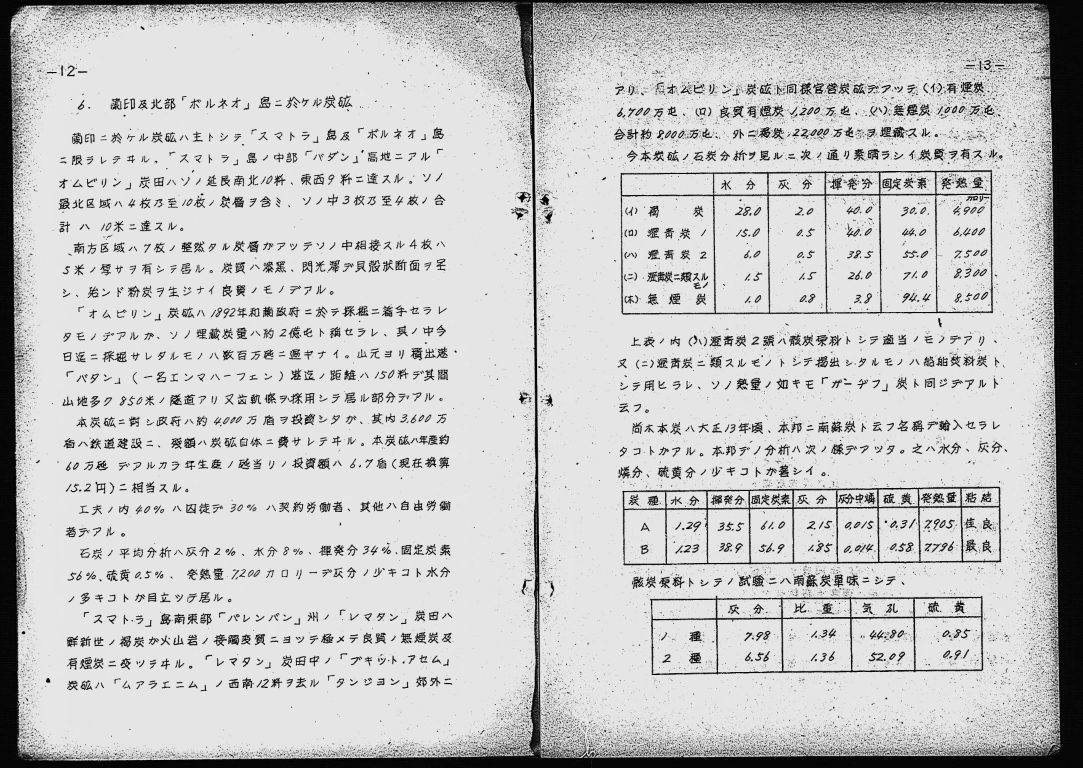 —12—
6. 蘭印及北部「ボルネオ」島ニ於ケル炭砿
蘭印ニ於ケル炭砿ハ主トシテ「スマトラ」島及「ボルネオ」島
ニ限ラレテヰル。「スマトラ」島ノ中部「パダン」高地ニアル「
オムビリン」炭田ハソノ延長南北10粁、東西9粁ニ達スル。ソノ
最北区域ハ4枚乃至10枚ノ炭層ヲ含ミ、ソノ中3枚乃至4枚ノ合
計ハ10米ニ達スル。
南方区域ハ7枚ノ整然タル炭層がアッテソノ中相接スル4枚ハ
5米ノ厚サヲ有シテ居ル。炭質ハ漆黒、閃光澤デ貝殻状断面ヲ呈
シ、殆ンド粉炭ヲ生ジナイ良質ノモノデアル。
「オムビリン」炭砿ハ1892年和蘭政府ニ於テ採掘ニ着手セラレ
タモノデアルが、ソノ埋蔵炭量ハ約2億屯ト稱セラレ、其ノ中今
日迄ニ採掘サレタルモノハ数百万屯ニ過ギナイ。山元ヨリ積出港
「パダン」(一名エンマハーフェン)港迄ノ距離ハ150粁デ其間
山地多ク850米ノ隧道アリ又歯軌條ヲ採用シラ居ル部分デアル。
本炭砿ニ對シ政府ハ約4,000万盾ヲ投資シタが、其内3,600万
盾ハ鉄道建設ニ、残額ハ炭砿自体ニ費サレテヰル。本炭砿ハ年産約
60万屯デアルカラ年生産ノ屯当リノ投資額ハ6.7盾(現在換算
15.2円)ニ相当スル。
工夫ノ内40%ハ囚徒デ30%ハ契約労働者、其他ハ自由労働
者デアル。
石炭ノ平均分析ハ灰分2%、水分8%、揮発分34%、固定炭素
56%、硫黄0.5%、発熱量7,200カロリーデ灰分ノ少キコト水分
ノ多キコトが目立ッテ居ル。
「スマトラ」島南東部「パレンバン」州ノ「レマタン」炭田ハ
鮮新世ノ褐炭が火山岩ノ接觸変質ニヨッテ極メテ良質ノ無煙炭及
有煙炭ニ変ツラヰル。「レマタン」炭田中ノ「ブキット・アセム」
炭砿ハ「ムアラエニム」ノ西南12粁ヲ去ル「タンジョン」郊外ニ
—13—
アリ、「オムビリン」炭砿ト同様官営炭砿デアッテ(イ)有煙炭
6,700万屯、(ロ)良質有煙炭1,200万屯、(ハ)無煙炭1,000万屯
合計約8,000万屯、外ニ褐炭22,000万屯ヲ埋蔵スル。
今本炭砿ノ石炭分析ヲ見ルニ次ノ通リ素晴ラシイ炭質ヲ有スル。
水分 灰分 揮発分 固定炭素 発熱量
カロリー
(イ) 褐炭 28.0 2.0 40.0 30.0 4,900
(ロ) 瀝青炭1 15.0 0.5 40.0 44.0 6,400
(ハ) 瀝青炭2 6.0 0.5 38.5 55.0 7,500
(ニ) 瀝青炭ニ類スルモノ 1.5 1.5 26.0 71.0 8,300
(ホ) 無煙炭 1.0 0.8 3.8 94.4 8,500
上表ノ内(ハ)瀝青炭2類ハ骸炭原料トシテ適当ノモノデアリ、
又(ニ)瀝青炭ニ類スルモノトシテ掲出シタルモノハ船舶焚料炭ト
シテ用ヒラレ、ソノ熱量ノ如キモ「カーヂフ」炭ト同ジデアルト
云フ。
尚木本炭ハ大正13年頃、本邦ニ南蘇炭ト云フ名稱デ輸入セラレ
タコトガアル。本邦デノ分析ハ次ノ様デアッタ。之ハ水分、灰分、
燐分、硫黄分ノ少キコトが著シイ。
炭種 水分 揮発分 固定炭素 灰分 灰分中燐 硫黄 発熱量 粘結
A 1.29 35.5 61.0 2.15 0.015 0.31 7905 佳良
B 1.23 38.9 56.9 1.85 0.014 0.58 7796 最良
骸炭原料トシテノ試験ニハ南蘇炭単味ニシテ、
灰分 比重 気孔 硫黄
1種 7.98 1.34 44.80 0.85
2種 6.56 1.36 52.09 0.91